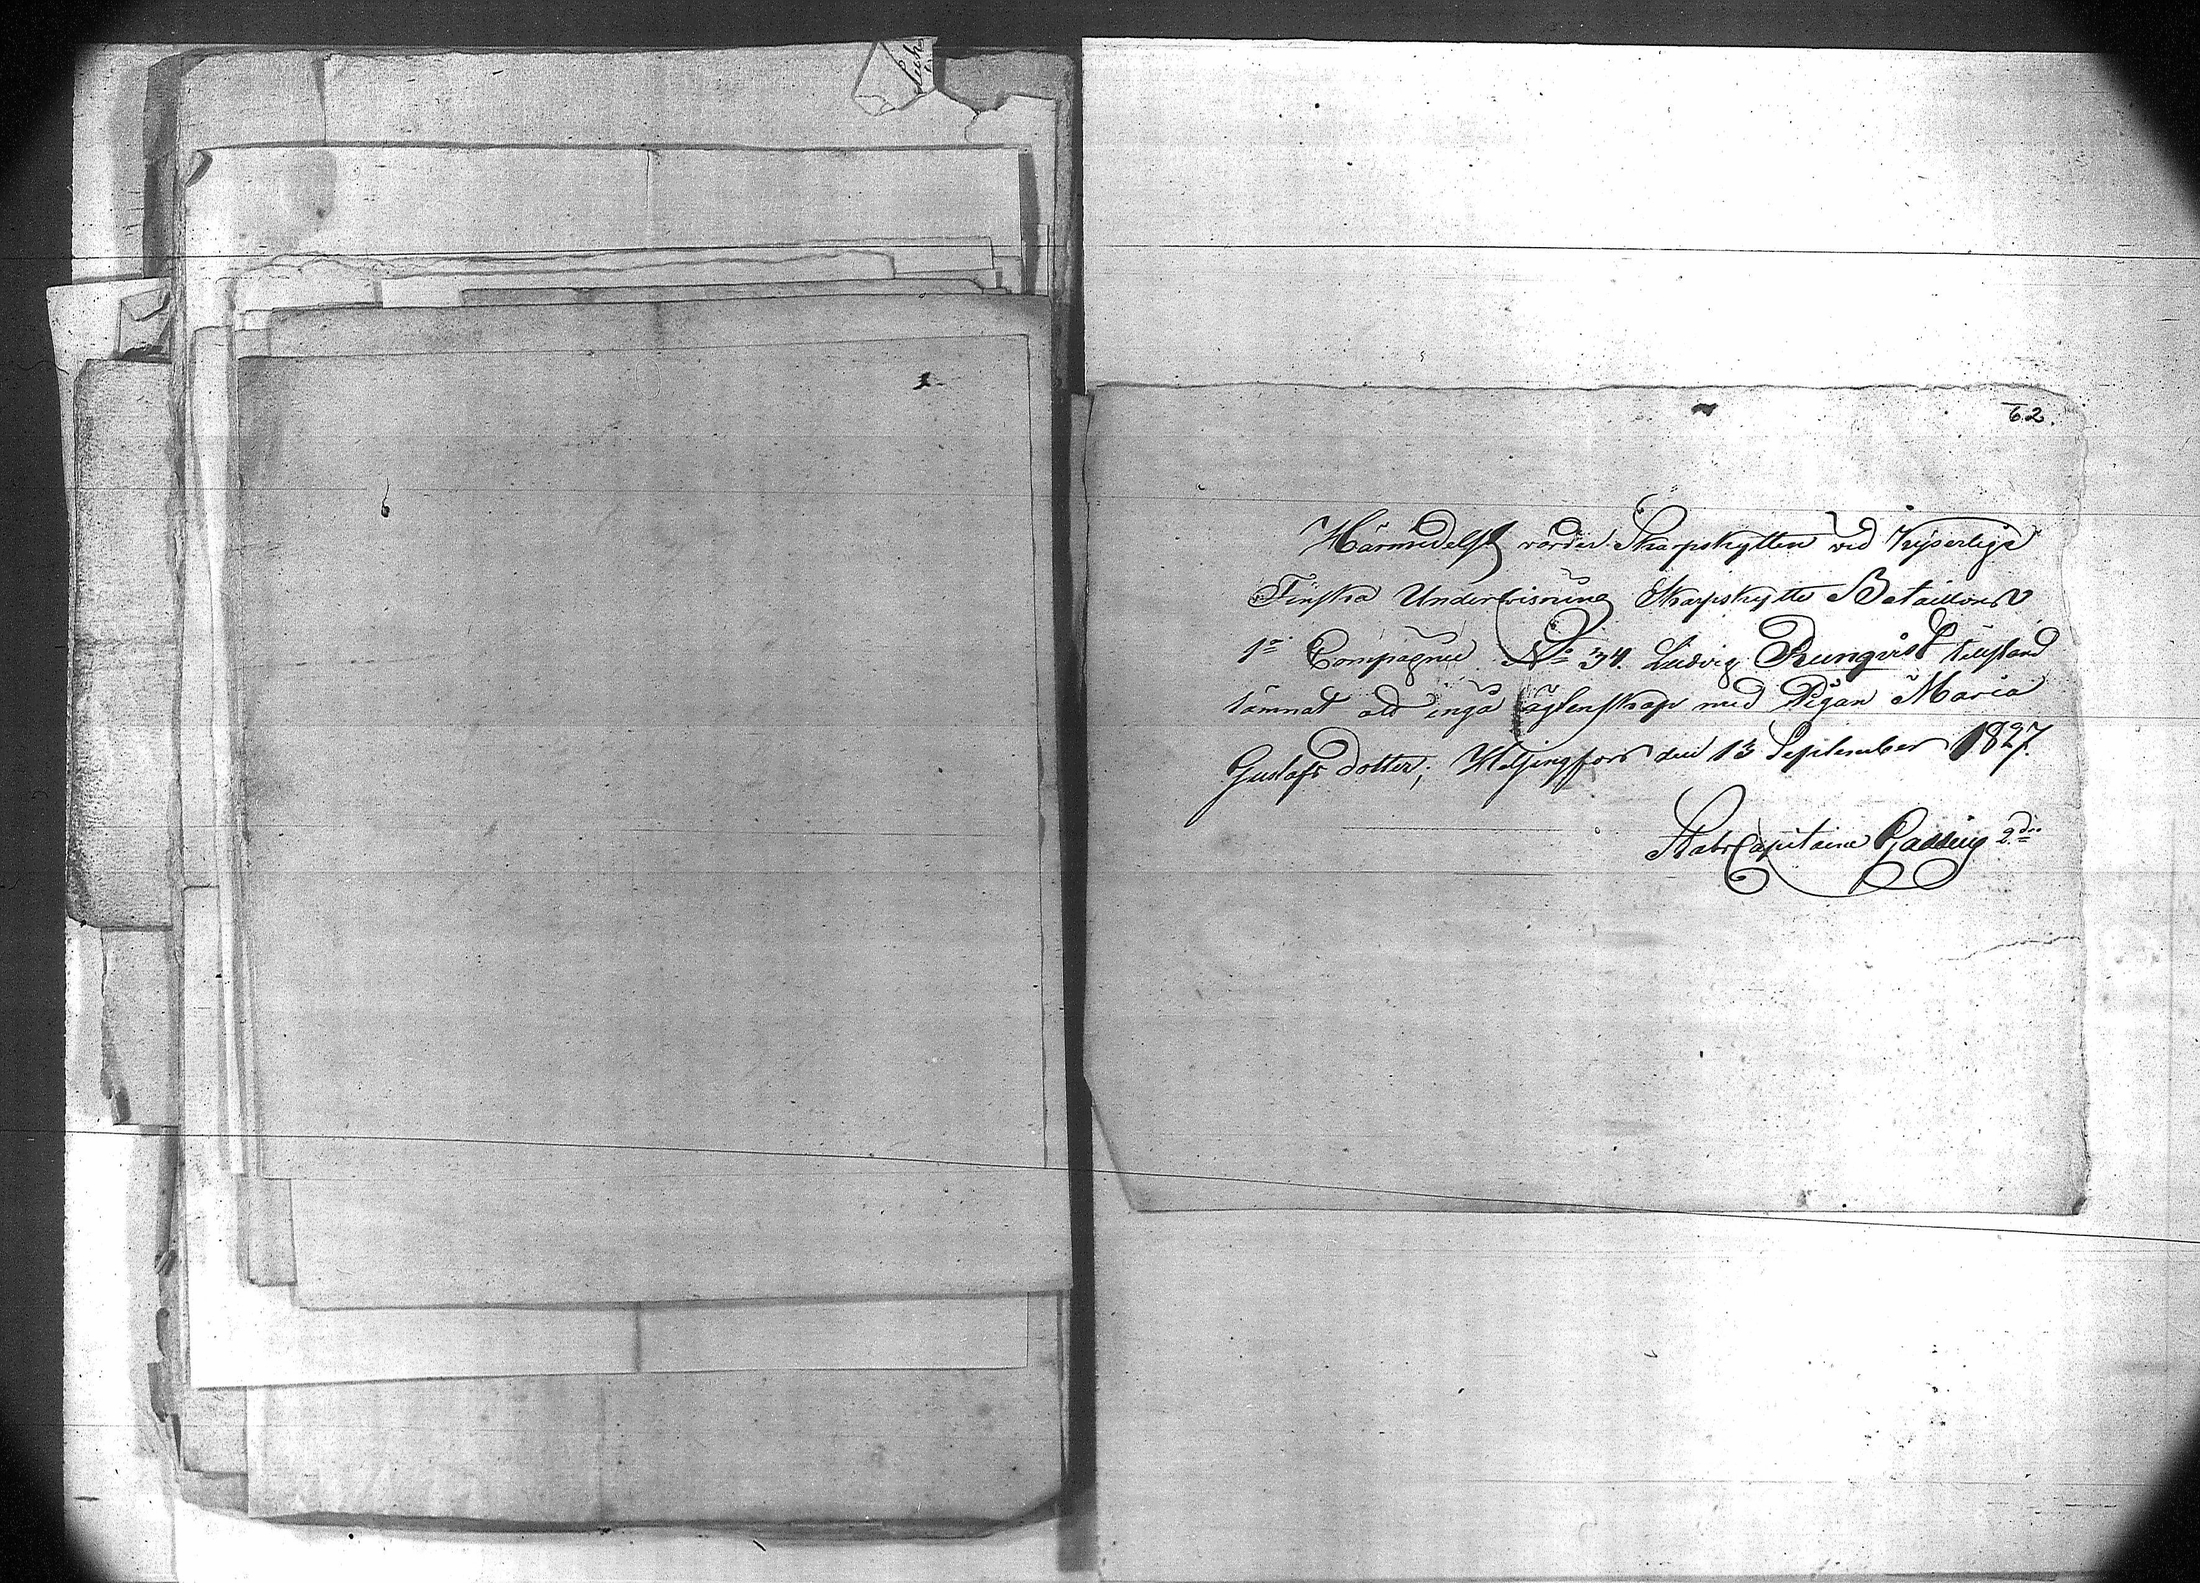 62.
Härmedelst varder Skarpskytten vid Kejserliga
Finska Undervisning Skarpskytte Bataillons
1a Compagnie No 34. Ludvig Runqvist tillstånd
lämnat att ingå äcktenskap med Pigan Maria
Gustafs dotter; Helsingfors den 13 September 1827.
Stabs Capitaine 2dre